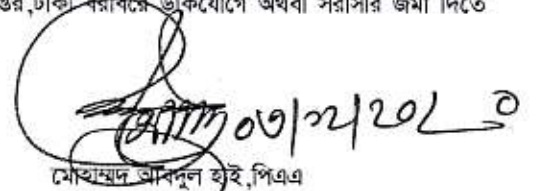 ঢাকা বরাবরে ডাকযোগে অথবা সরাসরি জমা দিতে
০৩/১২/২০২০
মোহাম্মদ আবদুল হাই,পিএএ